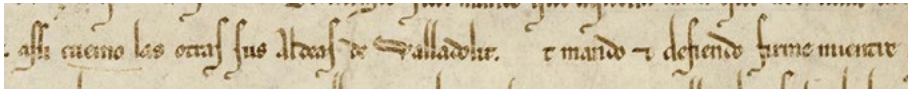 . assi cuemo las otras sus aldeas de Valladolit. τ mando τ defiendo firme mientre